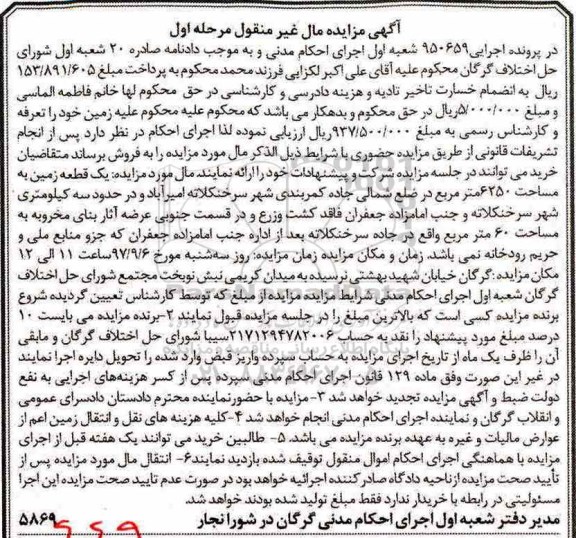 آگهی مزایده مال غیر منقول مرحله اول
در پرونده اجرایی ۹۵۰۶۵۹ شعبه اول اجرای احکام مدنی و به موجب دادنامه صادره ۲۰ شعبه اول شورای
حل اختلاف گرگان محکوم علیه آقای علی اکبر لکزایی فرزند محمد محکوم به پرداخت مبلغ ۱۵۳/۸۹۱/۶۰۵
ریال به انضمام خسارت تاخیر تادیه و هزینه دادرسی و کارشناسی در حق محکوم لها خانم فاطمه الماسی
و مبلغ ۵/۰۰۰/۰۰۰ریال در حق محکوم و بدهکار می باشد که محکوم علیه محکوم علیه زمین خود را تعرفه
و کارشناس رسمی به مبلغ ۹۳۷/۵۰۰/۰۰۰ریال ارزیابی نموده لذا اجرای احکام در نظر دارد پس از انجام
تشریفات قانونی از طریق مزایده حضوری با شرایط ذیل الذکر مال مورد مزایده را به فروش برساند متقاضیان
خرید می توانند در جلسه مزایده شرکت و پیشنهادات خود را ارائه نمایند. مال مورد مزایده: یک قطعه زمین به
مساحت ۶۲۵۰متر مربع در ضلع شمالی جاده کمربندی شهر سرخنکلاته امیرآباد و در حدود سه کیلومتری
شهر سرخنکلاته و جنب امامزاده جعفران فاقد کشت وزرع و در قسمت جنوبی عرضه آثار بنای مخروبه به
مساحت ۶۰ متر مربع واقع در جاده سرخنکلاته بعد از اداره جنب امامزاده جعفران که جزو منابع ملی و
حریم رودخانه نمی باشد. زمان و مکان مزایده زمان مزایده: روز سه‌شنبه مورخ ۹۷/۹/۶ ساعت ۱۱ الی ۱۲
مکان مزایده: گرگان خیابان شهید بهشتی نرسیده به میدان کریمی نبش نوبخت مجتمع شورای حل اختلاف
گرگان شعبه اول اجرای احکام مدنی شرایط مزایده مزایده از مبلغ که توسط کارشناس تعیین گردیده شروع
برنده مزایده کسی است که بالاترین مبلغ را در جلسه مزایده قبول نمایند ۲-برنده مزایده می بایست ۱۰
درصد مبلغ مورد پیشنهاد را نقد به حساب ۲۱۷۱۲۹۴۷۸۲۰۰۶سیبا شورای حل اختلاف گرگان و مابقی
آن را ظرف یک ماه از تاریخ اجرای مزایده به حساب سپرده واریز قبض وارد شده را تحویل دایره اجرا نمایند
در غیر این صورت وفق ماده ۱۲۹ قانون اجرای احکام مدنی سپرده پس از کسر هزینه‌های اجرایی به نفع
دولت ضبط و آگهی مزایده تجدید خواهد شد ۳- مزایده با حضورنماینده محترم دادستان دادسرای عمومی
و انقلاب گرگان و نماینده اجرای احکام مدنی انجام خواهد شد ۴-کلیه هزینه های نقل و انتقال زمین اعم از
عوارض مالیات و غیره به عهده برنده مزایده می باشد. ۵- طالبین خرید می توانند یک هفته قبل از اجرای
مزایده با هماهنگی اجرای احکام اموال منقول توقیف شده بازدید نمایند۶- انتقال مال مورد مزایده پس از
تأیید صحت مزایده ازناحیه دادگاه صادر کننده اجرائیه خواهد بود در صورت عدم تایید صحت مزایده این اجرا
مسئولیتی در رابطه با خریدار ندارد فقط مبلغ تولید شده بودند خواهد شد.
مدیر دفتر شعبه اول اجرای احکام مدنی گرگان در شورا نجار ۵۸۶۹